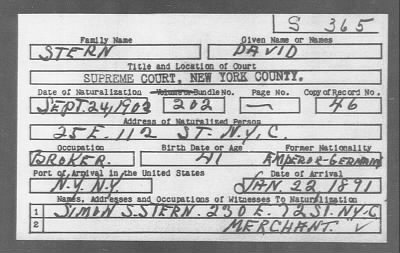 S 365
Family Name Given Name or Names
STERN DAVID
Title and Location of Court
SUPREME COURT, NEW YORK COUNTY.
Date of Naturalization Volume or Bundle No. Page No. Copy of Record No.
SEPT. 24, 1902 202 — 46
Address of Naturalized Person
25 E. 112 ST. N.Y.C.
Occupation Birth Date or Age Former Nationality
BROKER. 41 EMPEROR-GERMANY
Port of Arrival in the United States Date of Arrival
N.Y. N.Y. JAN. 22 1891
Names, Addresses and Occupations of Witnesses To Naturalization
1 SIMON S. STERN. 230 E. 72 ST. N.Y.C
2 MERCHANT. ✓